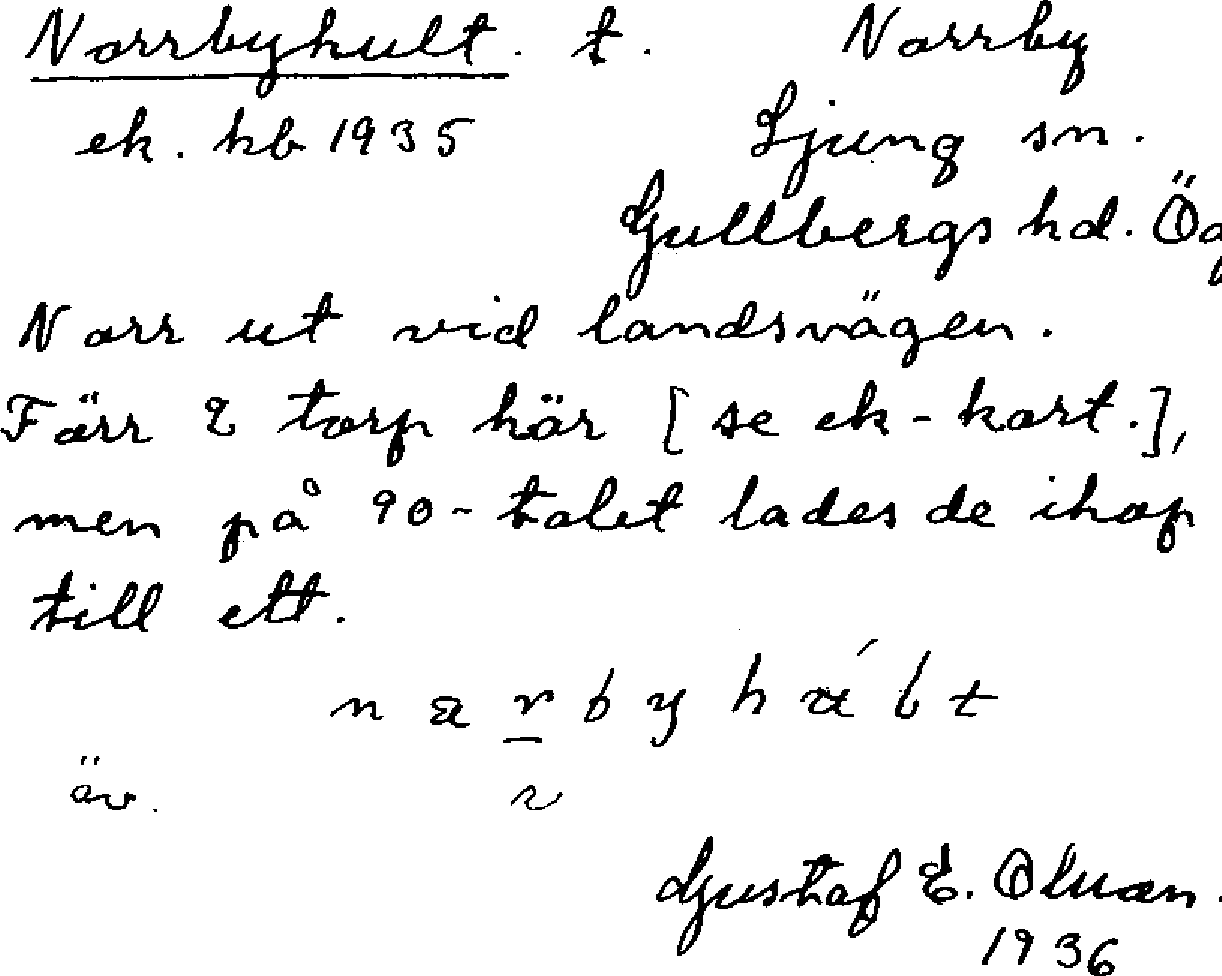 Norrbyhult. t. Norrby
ek. kb 1935 Ljung sn.
Gullbergs hd. Ög
Norr ut vid landsvägen.
Förr 2 torp här [se ek-kart.],
men på 90-talet lades de ihop
till ett.
äv.
Gustaf E. Olson.
1936